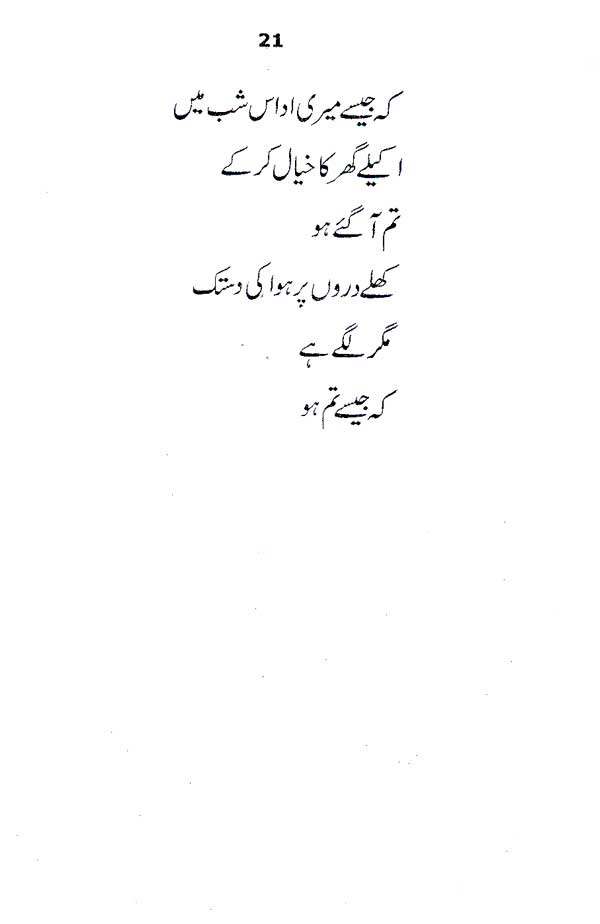 21
کہ جیسے میری اداس شب میں
اکیلے گھر کا خیال کر کے
تم آ گئے ہو
کھلے دروں پر ہوا کی دستک
مگر لگے ہے
کہ جیسے تم ہو